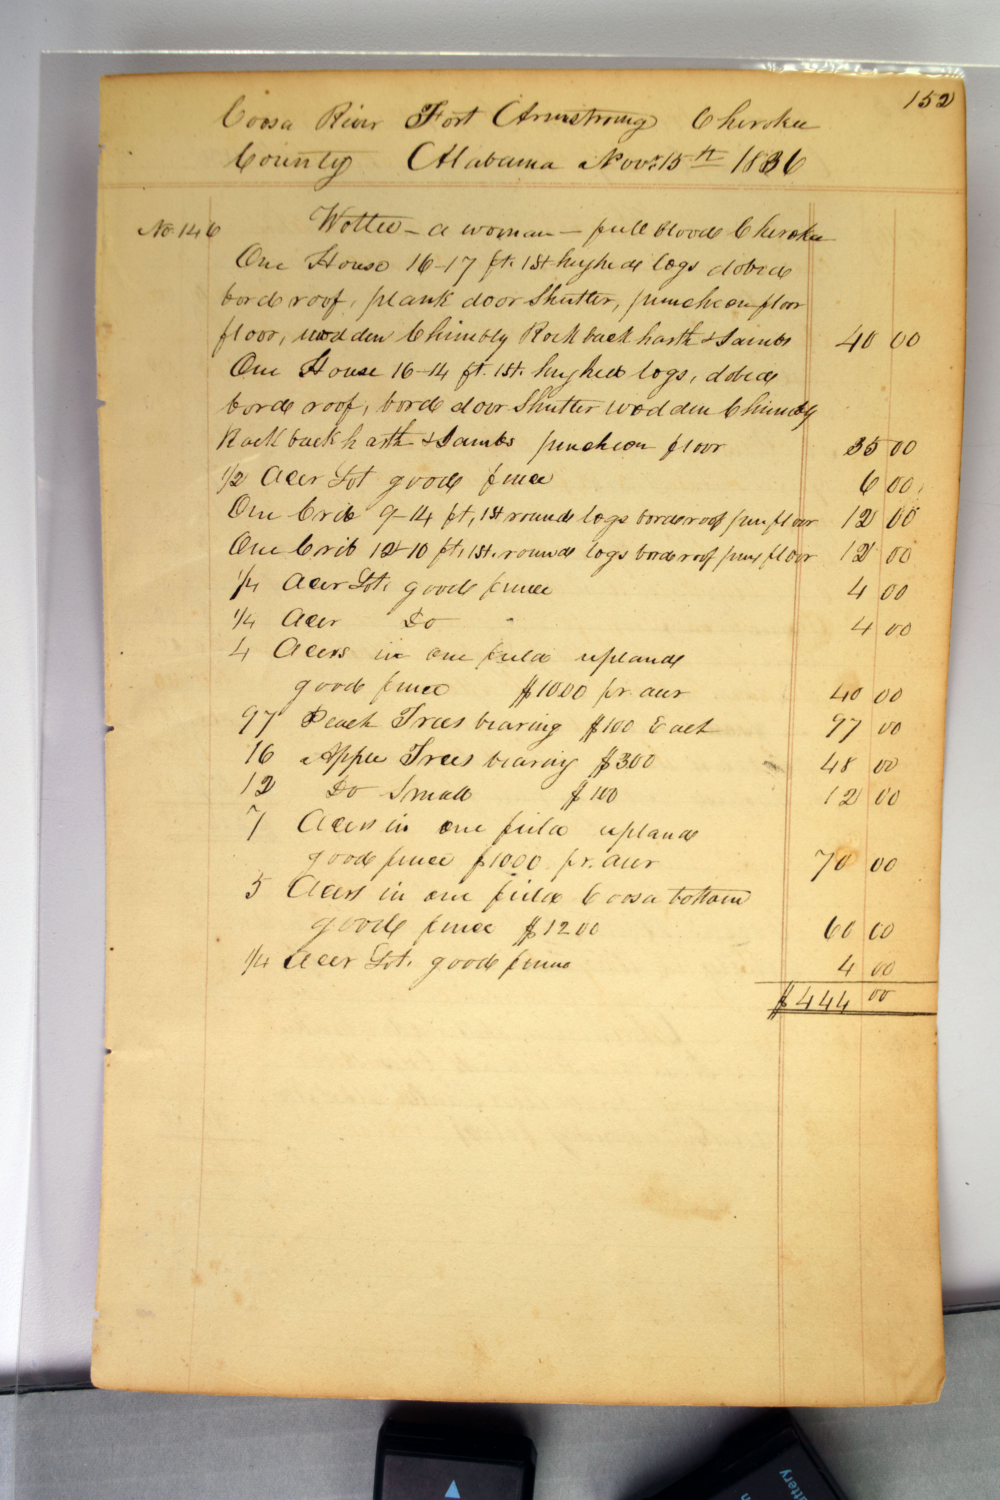 152
Coosa River Fort Armstrong Cherokee
County Alabama Nov. 15th 1836
No. 146 Wottee - a woman - full blood Cherokee
One House 16-17 ft. 1st. huyhed logs dobed
bord roof, plank door Shutter, puncheon floor
floor, wodden Chimbly Rock back harth & Jambs 40 00
One House 16-14 ft. 1st. huyhed logs, dobed
bord roof, bord door Shutter wodden Chimbly
Rock back harth & Jambs puncheon floor 35 00
1/2 Acer Lot good fence 6 00
One Crib 9-14 ft, 1st round logs bord roof pun floor 12 00
One Crib 12-10 ft, 1st. round logs bord roof pun floor 12 00
1/4 Acer Lot. good fence 4 00
1/4 Acer Do 4 00
4 Acers in one field upland
good fence $10.00 pr. acer 40 00
97 Peach Trees bearing $1.00 Each 97 00
16 Apple Trees bearing $3.00 48 00
12 Do Small $1.00 12 00
7 Acers in one field upland
good fence $10.00 pr. acer 70 00
5 Acers in one field Coosa bottom
good fence $12.00 60 00
1/4 Acer Lot. good fence 4 00
$444 00
ttery